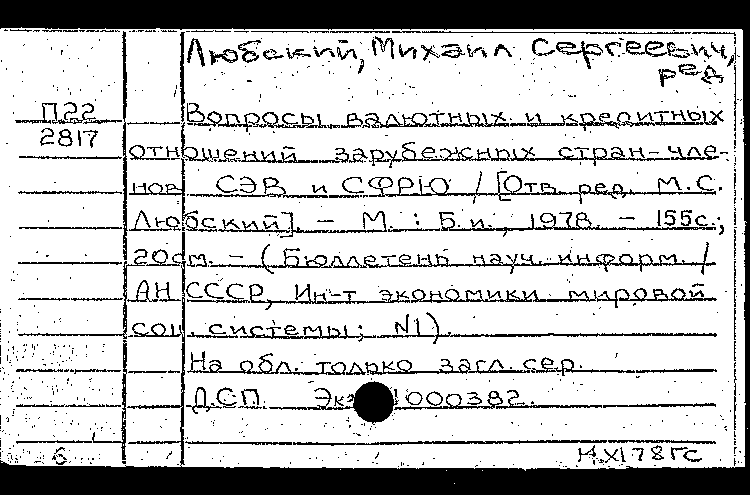 Любский, Михаил Сергеевич,
ред
П22
2817
Вопросы валютных и кредитных
отношений зарубежных стран-чле-
нов СЭВ и СФРЮ / [Отв. ред. М.С.
Любский]. - М. : Б.и., 1978. - 155с.;
20см. - (Бюллетень науч. информ. /
АН СССР, Ин-т экономики мировой
соц. системы; N1).
На обл. только загл. сер.
ДСП Экз 1000382.
6